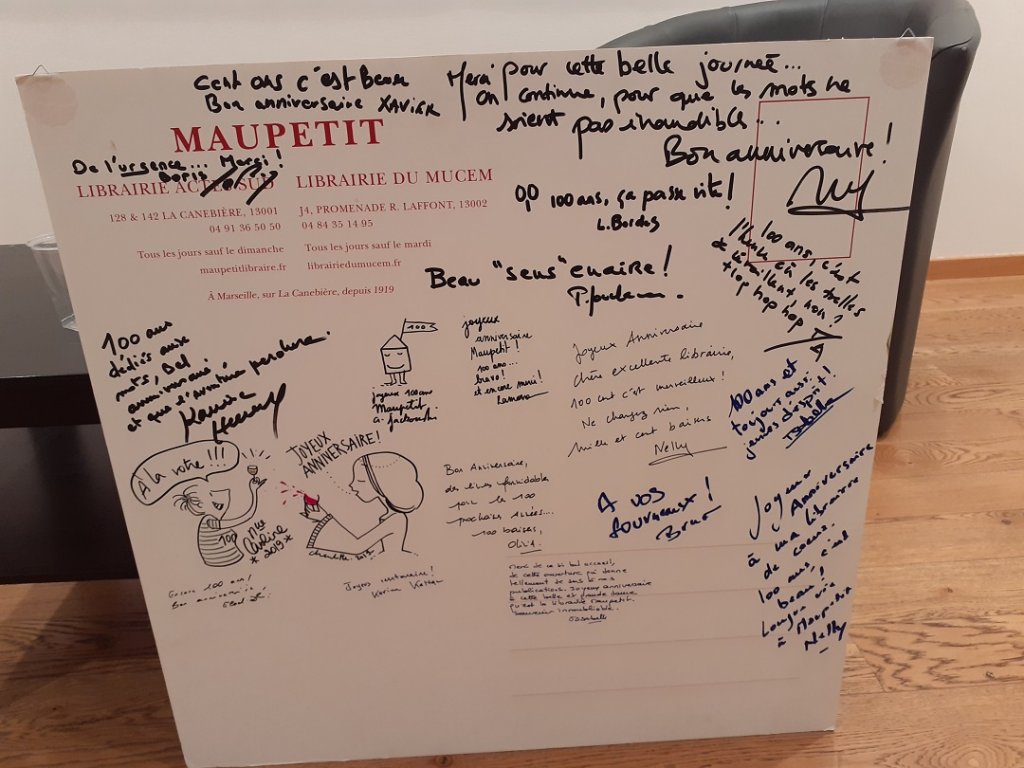 Cent ans c'est Beau
Bon anniversaire XAVIER
Merci pour cette belle journée...
On continue, pour que les mots ne
soient pas inaudibles...
Bon anniversaire!
MAUPETIT
De l'urgence... Merci!
Boris
LIBRAIRIE ACTES SUD
128 & 142 LA CANEBIÈRE, 13001
04 91 36 50 50
Tous les jours sauf le dimanche
maupetitlibraire.fr
LIBRAIRIE DU MUCEM
J4, PROMENADE R. LAFFONT, 13002
04 84 35 14 95
Tous les jours sauf le mardi
librairiedumucem.fr
À Marseille, sur La Canebière, depuis 1919
100 ans, ça passe vite!
L. Bordes
Beau "sens" enaire!
100 ans, c'est
hop hop
100 ans
dédiés aux
mots, Bel
anniversaire,
et que l'aventure perdure.
100
joyeux 100 ans
Maupetit
joyeux
anniversaire
Maupetit!
100 ans...
bravo!
et encore merci!
Joyeux Anniversaire
Chère excellente librairie,
100 ans c'est merveilleux!
Ne changez rien,
Mille et cent baisers
Nelly
100 ans et
toujours aussi
jeunes d'esprit!
Isabelle
À la votre!!!
100
* 2019 *
JOYEUX
ANNIVERSAIRE!
Bon Anniversaire,
des livres formidables
pour les 100
prochaines années...
100 baisers,
Olivia
A vos
fourneaux!
Bruno
Joyeux
Anniversaire
à ma
librairie
de coeur.
100 ans, c'est
beau!
Longue vie
à Maupetit
Nelly
Encore 100 ans!
Bon anniversaire
Joyeux centenaire!
Merci de ce si bel accueil,
de cette ouverture qui donne
tellement de sens à nos
publications. Joyeux anniversaire
à cette belle et grande dame
qu'est la librairie Maupetit.
Souvenir inoubliable.